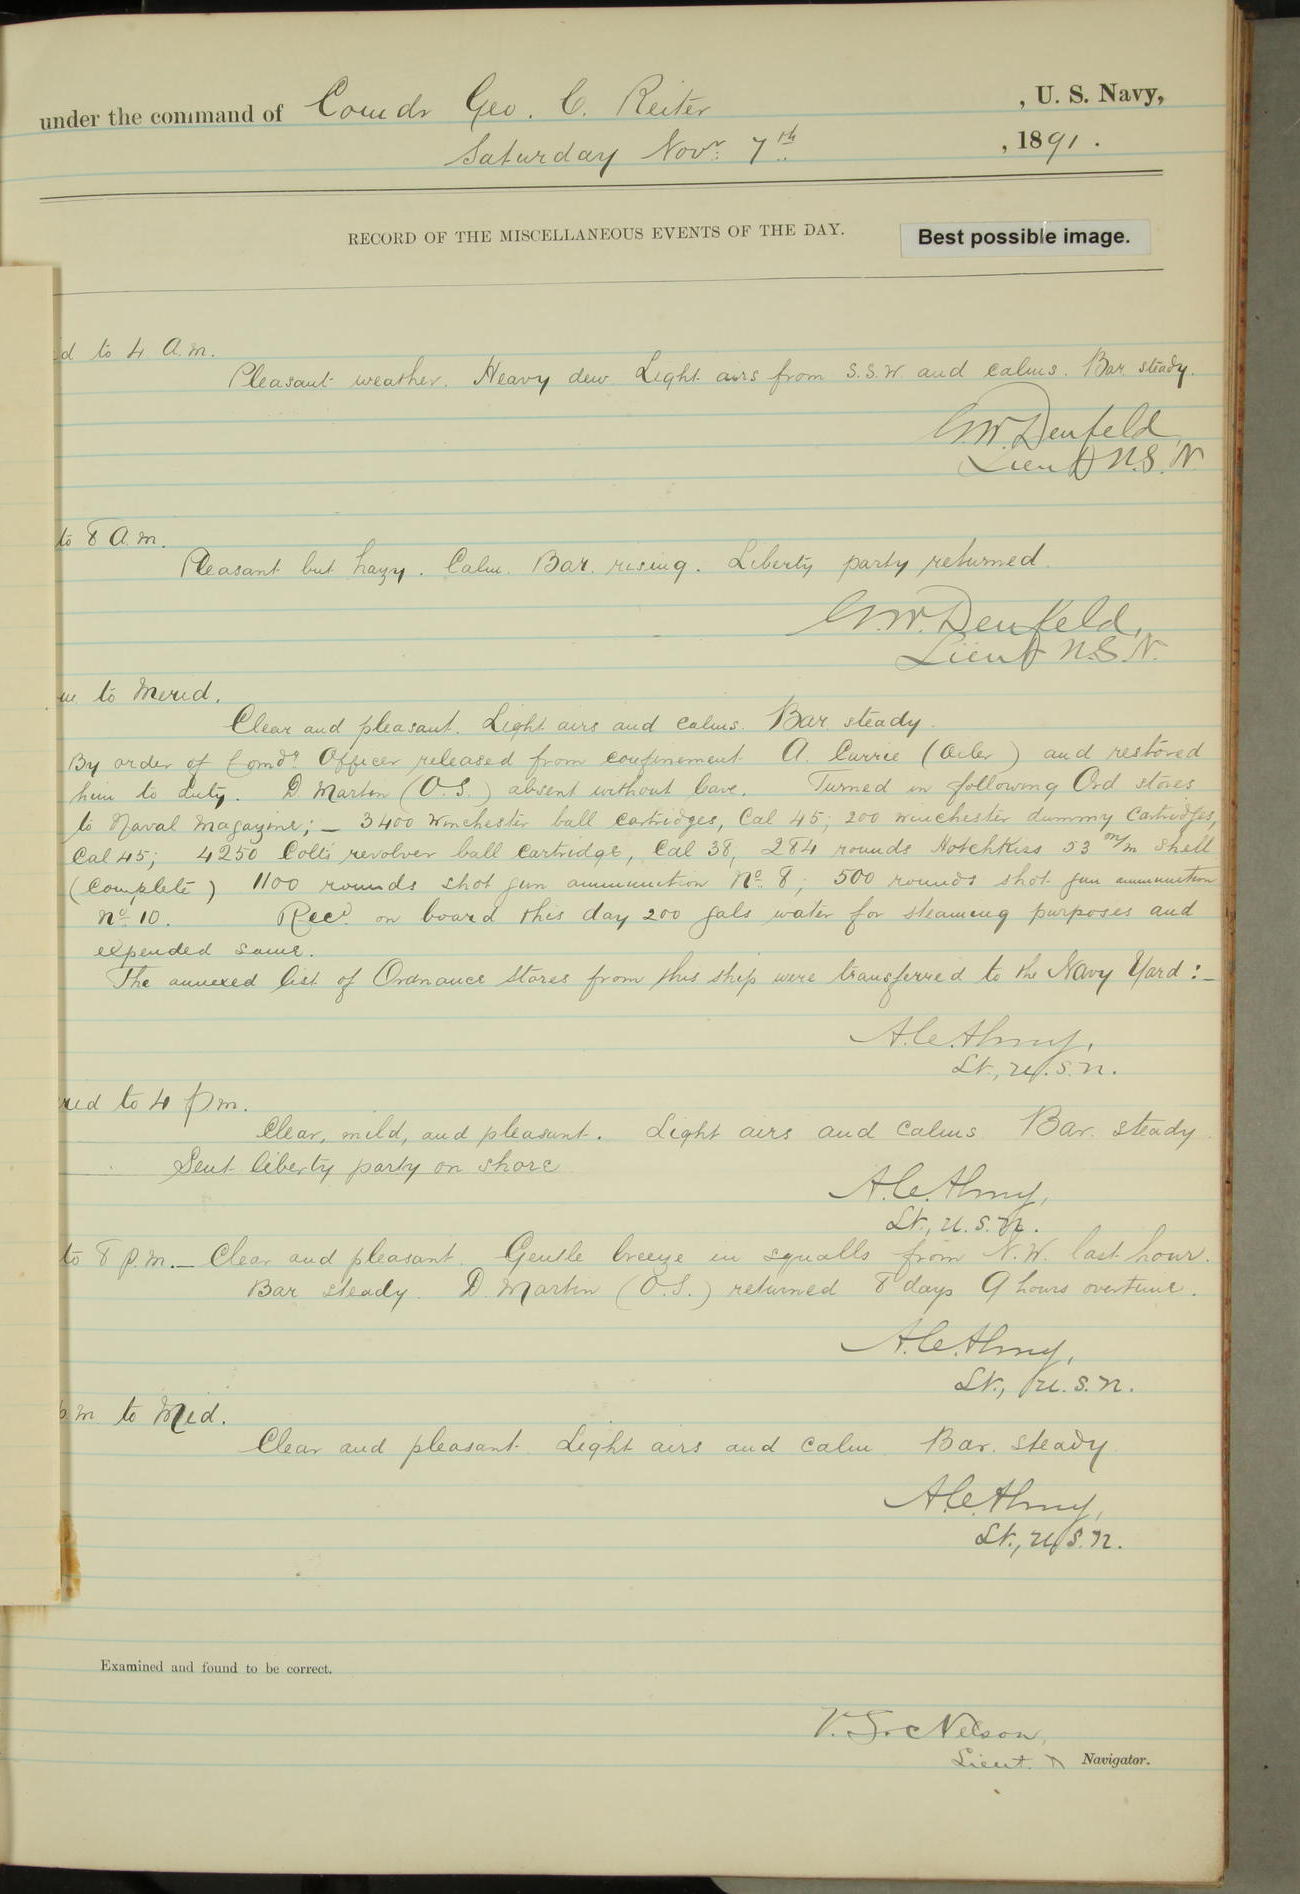 under the command of Comdr Geo. C. Reiter , U. S. Navy,
Saturday Novr. 7th , 1891.
RECORD OF THE MISCELLANEOUS EVENTS OF THE DAY.
Best possible image.
d to 4 A.m.
Pleasant weather. Heavy dew Light airs from S.S.W. and calms. Bar steady.
G.W. Denfeld,
Lieut U.S.N.
to 8 A.m.
Pleasant but hazy. Calm. Bar. rising. Liberty party returned.
G.W. Denfeld,
Lieut U.S.N.
to Merid.
Clear and pleasant. Light airs and calms. Bar. steady.
By order of Comdr. Officer released from confinement A. Currie (Oiler) and restored
him to duty. D. Martin (O.S.) absent without leave. Turned in following Ord stores
to Naval Magazine; — 3400 Winchester ball cartridges, Cal 45; 200 winchester dummy cartridges,
Cal 45; 4250 Colts revolver ball cartridge, Cal 38, 284 rounds Hotchkiss 53 m/m shell
(complete) 1100 rounds shot gun ammunition No. 8; 500 rounds shot gun ammunition
No. 10. Recd on board this day 200 gals water for steaming purposes and
expended same.
The annexed list of Ordnance Stores from this ship were transferred to the Navy Yard :—
A.C. Almy,
Lt., U.S.N.
red to 4 p m.
Clear, mild, and pleasant. Light airs and calms Bar. steady.
Sent liberty party on shore
A.C. Almy,
Lt., U.S.N.
to 8 p.m.— Clear and pleasant. Gentle breeze in squalls from N.W. last hour.
Bar steady. D. Martin (O.S.) returned 8 days 9 hours overtime.
A.C. Almy,
Lt., U.S.N.
p.m. to Mid.
Clear and pleasant. Light airs and calm Bar. steady
A.C. Almy,
Lt., U.S.N.
Examined and found to be correct.
V. S. Nelson,
Lieut. & Navigator.